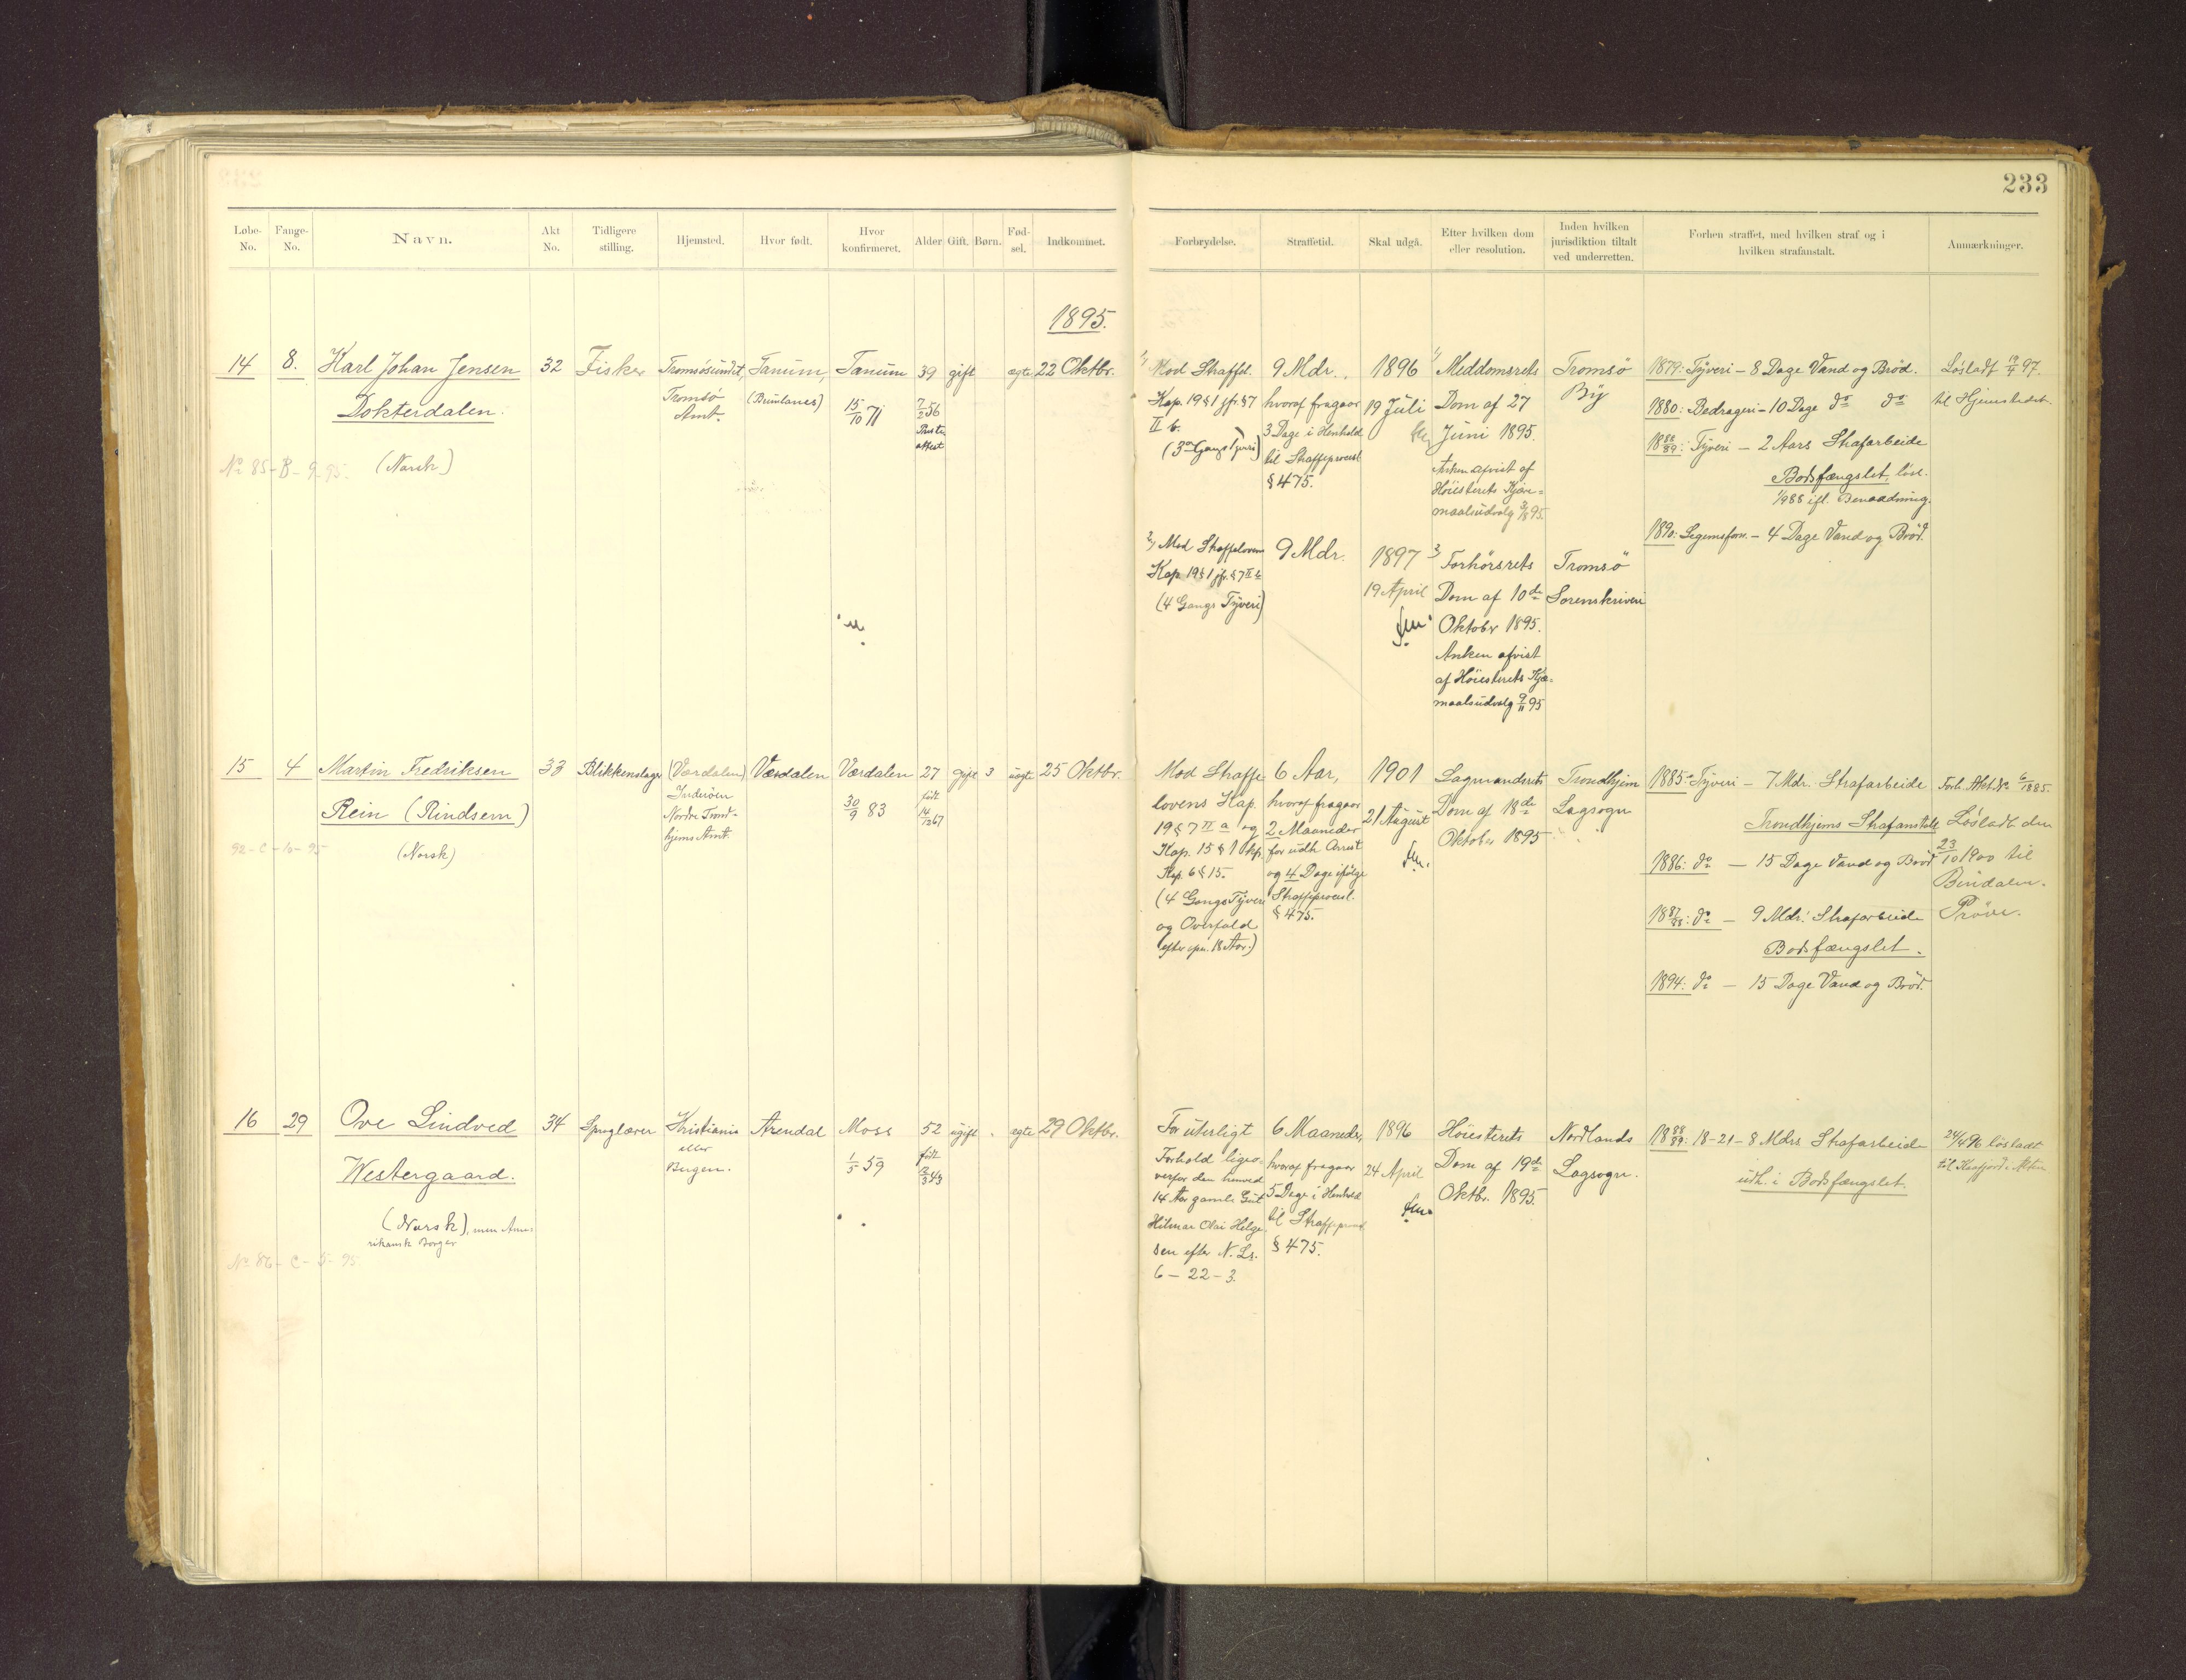 233
Løbe-No.
Fange-No.
Navn.
Akt No.
Tidligere stilling.
Hjemsted.
Hvor født.
Hvor konfirmeret.
Alder
Gift.
Børn.
Fød-sel.
Indkommet.
Forbrydelse.
Straffetid.
Skal udgå.
Efter hvilken dom eller resolution.
Inden hvilken jurisdiktion tiltalt ved underretten.
Forhen straffet, med hvilken straf og i hvilken strafanstalt.
Anmærkninger.
1895.
14
8.
Karl Johan Jensen
Dokterdalen.
(Norsk)
No 85-B-9-95.
32
Fisker
Tromsøsundet,
Tromsø
Amt.
Tanum,
(Brunlanes)
Tanum
15/10 71
39
7/2 56
Preste
attest
gift
ægte
22 Oktbr.
1/ Mod Straffel.
Kap. 19 § 1 jfr. § 7
II b.
(3die Gangs Tyveri)
9 Mdr.
hvoraf fragaar
3 Dage i Henhold
til Straffeprocesl.
§ 475.
1896
19 Juli
1/ Meddomsrets
Dom af 27
Juni 1895.
Anken afvist af
Høiesterets Kjære-
maalsudvalg 3/8 95.
Tromsö
By
1879: Tyveri - 8 Dage Vand og Bröd.
1880: Bedrageri - 10 Dage do do
1888/89: Tyveri - 2 Aars Strafarbeide
Bodsfængslet, løsl.
ifl. Benaadning.
1890: Legemsforn. - 4 Dage Vand og Bröd.
Løsladt 19/4 97.
til Hjemstedet.
2/ Mod Straffelovens
Kap 19 § 1 jfr. § 7 II b
(4 Gangs Tyveri)
9 Mdr.
1897
19 April
2/ Forhørsrets
Dom af 10de
Oktober 1895.
Anken afvist
af Høiesterets Kjæ-
maalsudvalg 9/11 95
Tromsö
Sorenskriveri
15
4
Martin Fredriksen
Rein (Rindsem)
(Norsk)
92-C-10-95
33
Blikkenslager
(Værdalen)
Inderøen
Nordre Trond-
hjems Amt.
Værdalen
Værdalen
30/9 83
27
født
14/12 67
gift
3
uægte
25 Oktbr.
Mod Straffe
lovens Kap.
19 § 7 II a og
Kap. 15 § 1 jfr.
Kap. 6 § 15.
(4 Gangs Tyveri
og Overfald
efter opn. 18 Aar.)
6 Aar,
hvoraf fragaar
2 Maaneder
for udh. Arrest
og 4 Dage ifølge
Straffeprocesl.
§ 475.
1901
21 August
Lagmandsrets
Dom af 18de
Oktober 1895
Trondhjem
Lagsogn
1885: Tyveri - 7 Mdr. Strafarbeide
Trondhjems Strafanstalt
1886: do - 15 Dage Vand og Bröd
1887/88: do - 9 Mdr. Strafarbeide
Bodsfængslet.
1894: do - 15 Dage Vand og Bröd.
Forh. Akt No 6/1885.
Løsladt den
23/10 1900 til
Bindalen.
Prøve.
16
29
Ove Lindved
Westergaard.
(Norsk), men Ame-
rikansk Borger
No 86-C-5-95
34
Sproglærer
Kristiania
eller
Bergen.
Arendal
Moss
1/5 59
52
født
2/3 43
ugift
ægte
29 Oktbr.
For uterligt
Forhold ligeo-
verfor den henved
14 Aar gamle Gut
Hilmar Olai Helge-
sen efter N. L.
6 - 22 - 3.
6 Maaneder,
hvoraf fragaar
5 Dage i Henhold
til Straffeprocesl.
§ 475.
1896
24 April
Høiesterets
Dom af 19de
Oktbr. 1895.
Nordlands
Lagsogn.
1888/89: 18-21 - 8 Mdrs Strafarbeide
udh. i Bodsfængslet.
24/4 96 løsladt
til Kaafjord i Alten